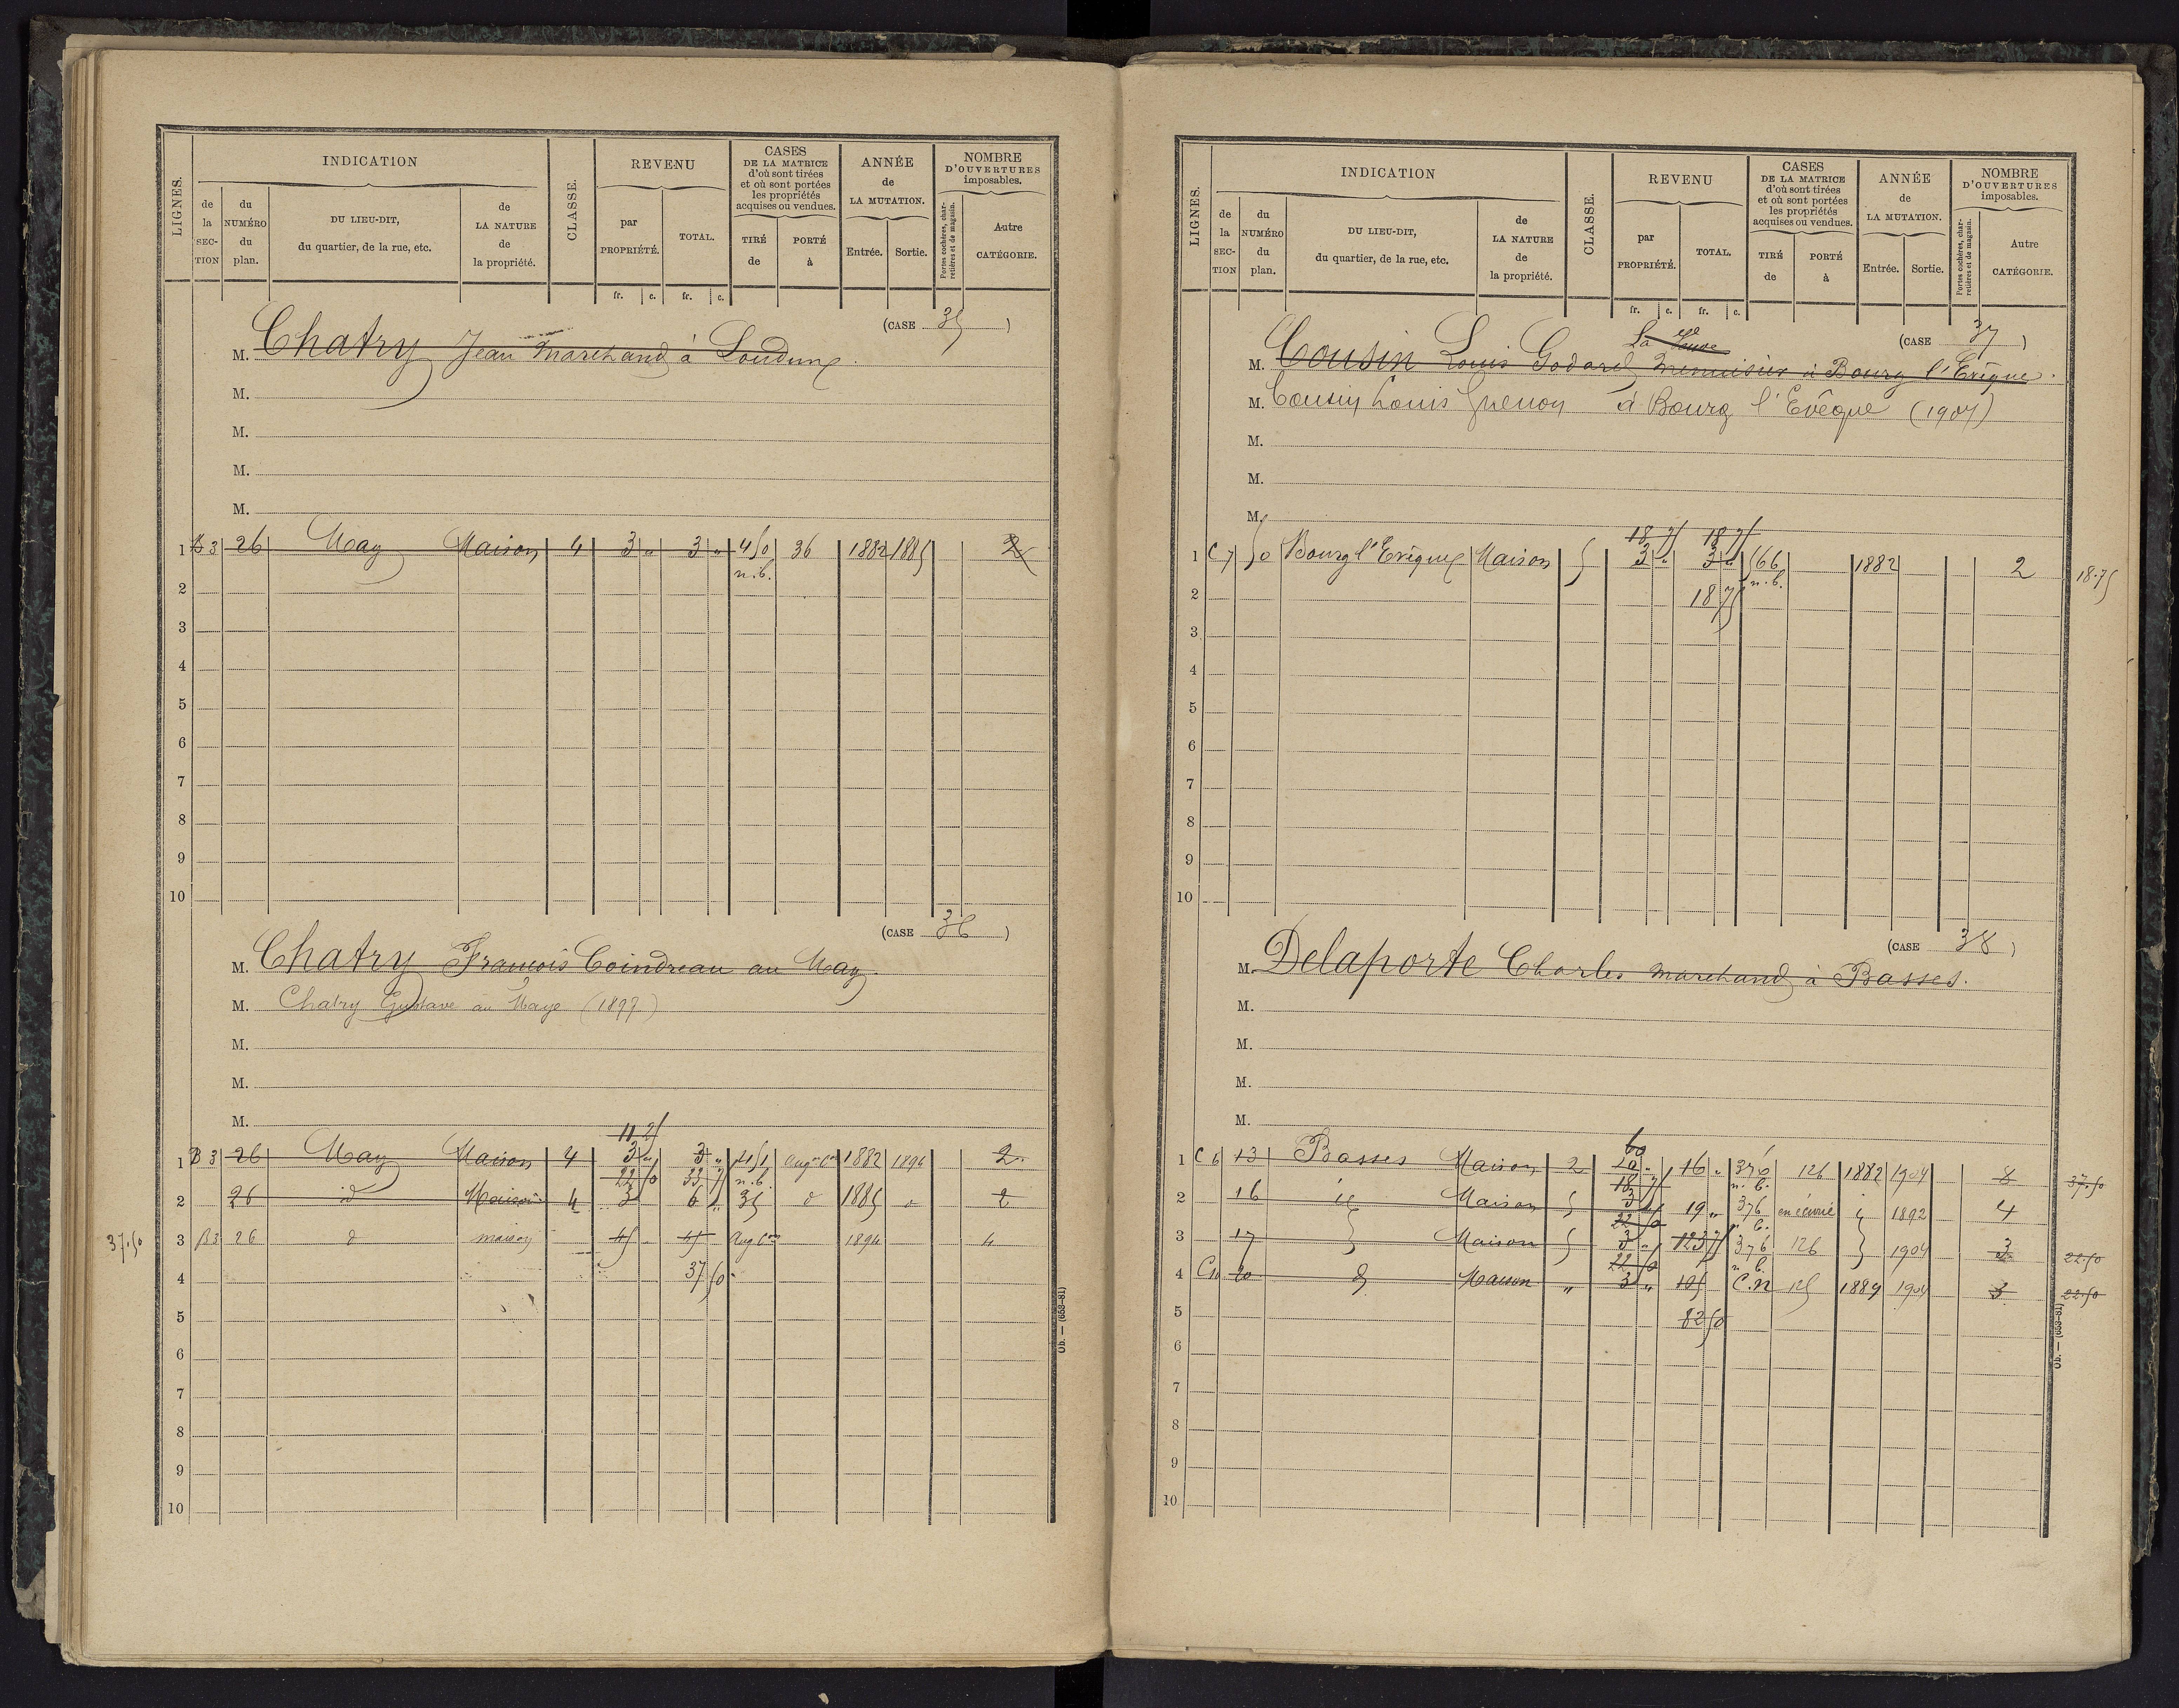 LIGNES. INDICATION CLASSE. REVENU CASES DE LA MATRICE d'où sont tirées et où sont portées les propriétés acquises ou vendues. ANNÉE de LA MUTATION. NOMBRE D'OUVERTURES imposables.
de la SEC-TION du NUMÉRO du plan. DU LIEU-DIT, du quartier, de la rue, etc. de LA NATURE de la propriété. par PROPRIÉTÉ. TOTAL. TIRÉ de PORTÉ à Entrée. Sortie. Portes cochères, charretières et de magasin. Autre CATÉGORIE.
fr. c. fr. c.
(CASE 35)
M. Chatry Jean Marchand à Loudun
M.
M.
M.
M.
1 B 3 26 May Maison 4 3 " 3 " 450 36 1882 1885 2
n.b.
2
3
4
5
6
7
8
9
10
(CASE 36)
M. Chatry François Coindreau au May.
M. Chatry Gustave au Maye (1897)
M.
M.
M.
11 25
1 B 3 26 May Maison 4 3 " 3 " 451 Augon 1882 1894 2
22 50 33 75 n.b.
2 26 id Maison 4 3 6 " 35 d 1885 " 2
37.50 3 B3 26 d maison 45 45 Augon 1894 4
4 37 50
5
6
7
8
9
10
Ob. — (658-81)
LIGNES. INDICATION CLASSE. REVENU CASES DE LA MATRICE d'où sont tirées et où sont portées les propriétés acquises ou vendues. ANNÉE de LA MUTATION. NOMBRE D'OUVERTURES imposables.
de la SEC-TION du NUMÉRO du plan. DU LIEU-DIT, du quartier, de la rue, etc. de LA NATURE de la propriété. par PROPRIÉTÉ. TOTAL. TIRÉ de PORTÉ à Entrée. Sortie. Portes cochères, charretières et de magasin. Autre CATÉGORIE.
fr. c. fr. c.
(CASE 37)
La Veuve
M. Cousin Louis Godard menuisier à Bourg l'Evêque.
M. Cousin Louis Guenon à Bourg l'Evêque (1907)
M.
M.
M.
18 75 18 75
1 C 7 50 Bourg l'Evêque Maison 5 3 " 3 " 566 1882 2 18.75
n.b.
2 18 75
3
4
5
6
7
8
9
10
(CASE 38)
M. Delaporte Charles marchand à Basses.
M.
M.
M.
M.
60
1 C 6 13 Basses Maison 2 10 " 16 " 376 126 1882 1904 8 37.50
18 75 n.b.
2 16 id Maison 5 3 19 " 376 1892 4
22 50
3 17 Maison 5 3 " 123 75 376 126 1904 3 22.50
22 50 n.b.
4 C10 20 d Maison " 3 " 105 C.N 125 1889 1904 3 22.50
5 82 50
6
7
8
9
10
Ob. — (658-81)